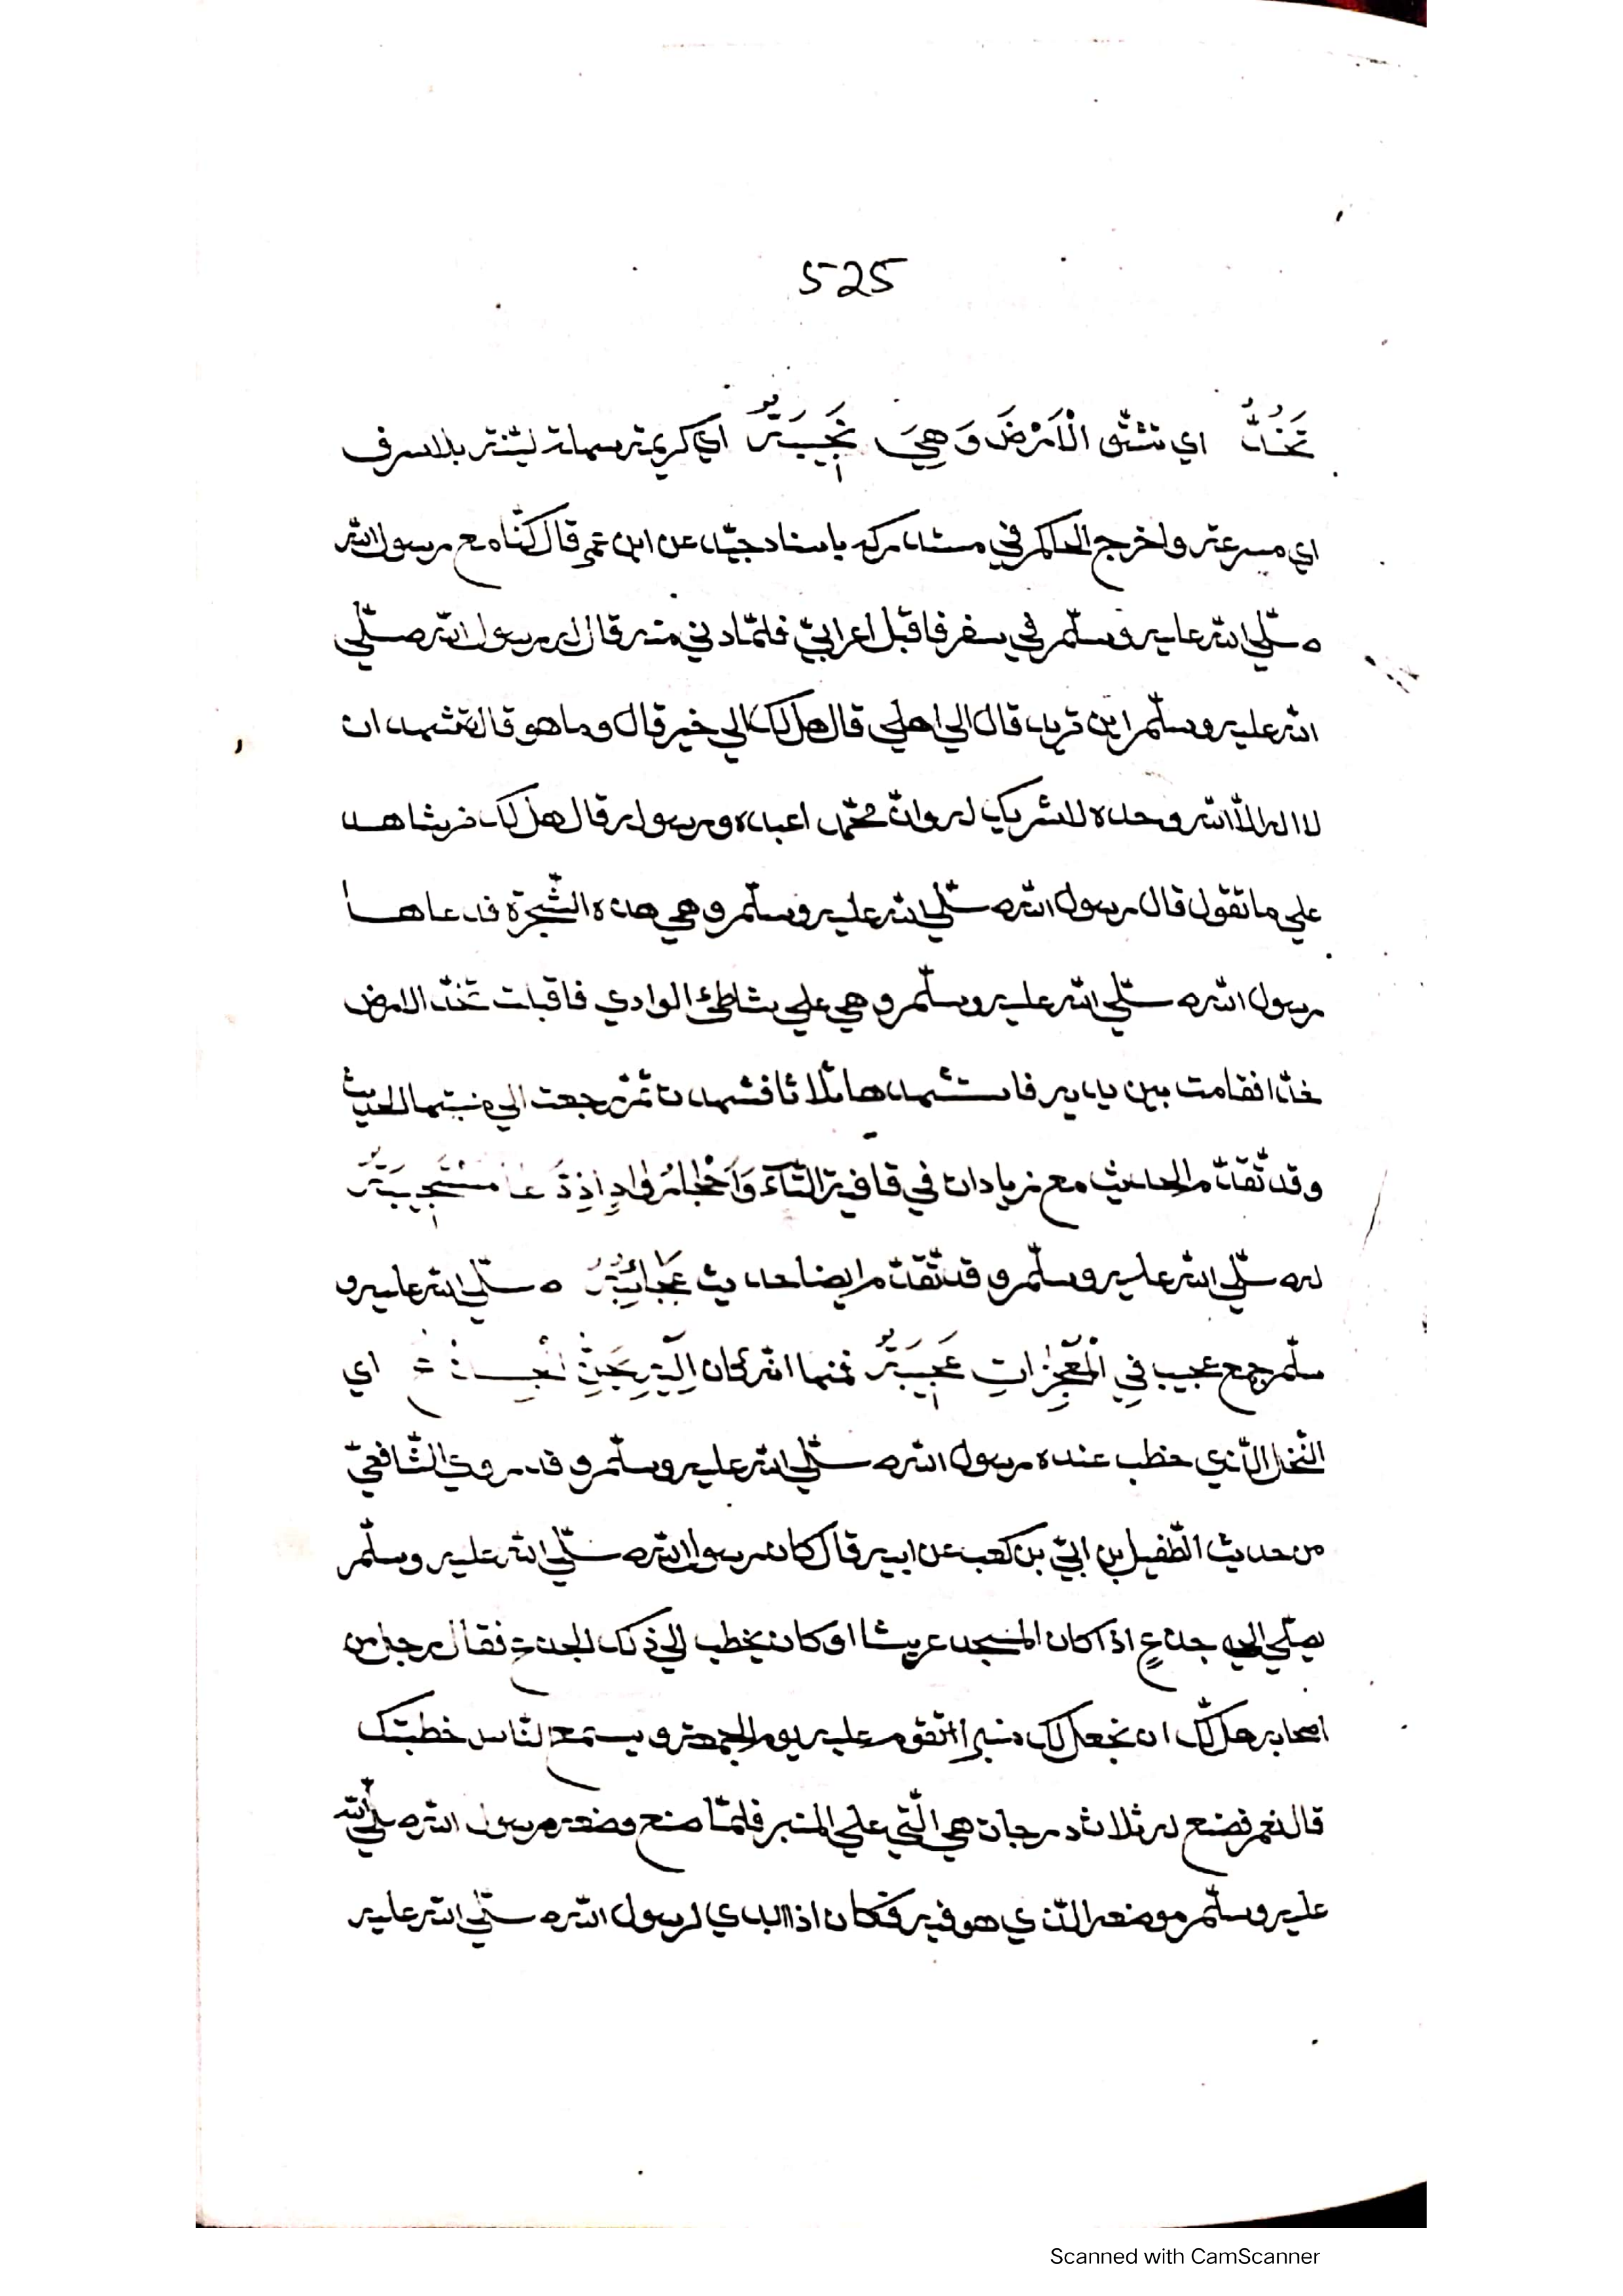 525
تَخُدُّ اي تشقّ الْاَرْضَ وَهِيَ نَجِيبَةٌ اي كريمة سهلة ليّنة بلا سرف
اي مسرعة واخرج الحاكم في مستدركه باسناد جيّد عن ابن عمر قال كنّا مع رسول الله
صلّي الله عليه وسلّم في سفر فاقبل اعرابيّ فلمّا دني منه قال له رسول الله صلّي
الله عليه وسلّم اين تريد قال الي اهلي قال هل لك الي خير قال وما هو قال تشهد ان
لا اله الّا الله وحده لا شريك له وانّ محمّدا عبده ورسوله قال هل لك من شاهد
علي ما تقول قال رسول الله صلّي الله عليه وسلّم وهي هذه الشّجرة فدعاها
رسول الله صلّي الله عليه وسلّم وهي علي شاطئ الوادي فاقبلت تخدّ الارض
خدّا فقامت بين يديه فاستشهدها ثلاثا فشهدت ثمّ رجعت الي منبتها الحديث
وقد تّقدّم الحديث مع زيادات في قافية التّاء وَاَحْجَارُ وَادٍ اِذْ دَعَا مُسْتَجِيبَةٌ
له صلّي الله عليه وسلّم وقد تّقدّم ايضا حديث عَجَائِبُهُ صلّي الله عليه و
سلّم جمع عجيب فِي الْمُعْجِزَاتِ عَجِيبَةٌ فمنها انّه كان اي
النّخل الّذي خطب عنده رسول الله صلّي الله عليه وسلّم وقد روي الشّافعيّ
من حديث الطّفيل بن ابيّ بن كعب عن ابيه قال كان رسول الله صلّي الله عليه وسلّم
يصلّي الي جذع اذا كان المسجد عريشا وكان يخطب الي ذلك الجذع فقال رجل من
اصحابه هل لّك ان نجعل لك منبرا تقوم عليه يوم الجمعة ويسمع النّاس خطبتك
قال نعم فصنع له ثلاث درجات هي الّتي علي المنبر فلمّا صنع وضعه رسول الله صلّي الله
عليه وسلّم موضعه الّذي هو فيه فكان اذا بدي لرسول الله صلّي الله عليه
Scanned with CamScanner